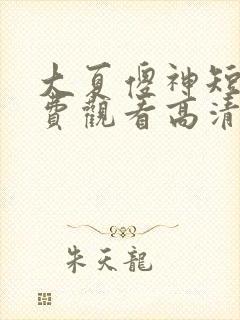 大夏傻神短
費觀看高清
朱天龍